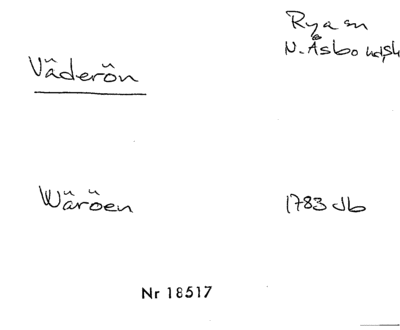 Rya sn
N. Åsbo
Väderön
Wäröen
1783 Jb
Nr 18517